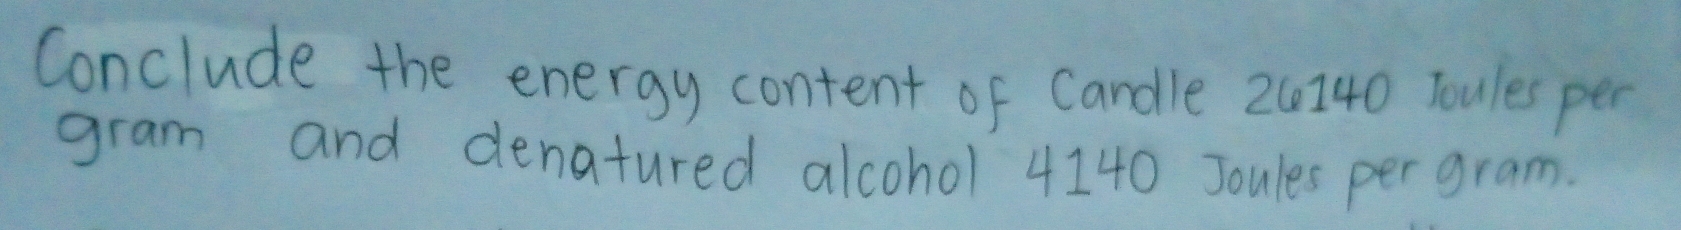 Conclude the energy content of Candle 26140 Joules per
gram and denatured alcohol 4140 Joules per gram.